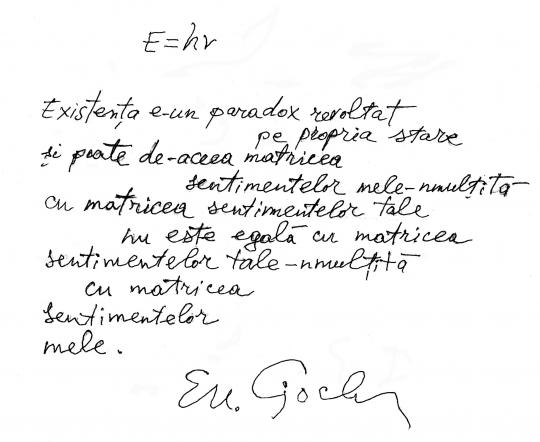 E=hν
Existența e-un paradox revoltat
pe propria stare
și poate de-aceea matricea
sentimentelor mele-nmulțită
cu matricea sentimentelor tale
nu este egală cu matricea
sentimentelor tale-nmulțită
cu matricea
sentimentelor
mele.